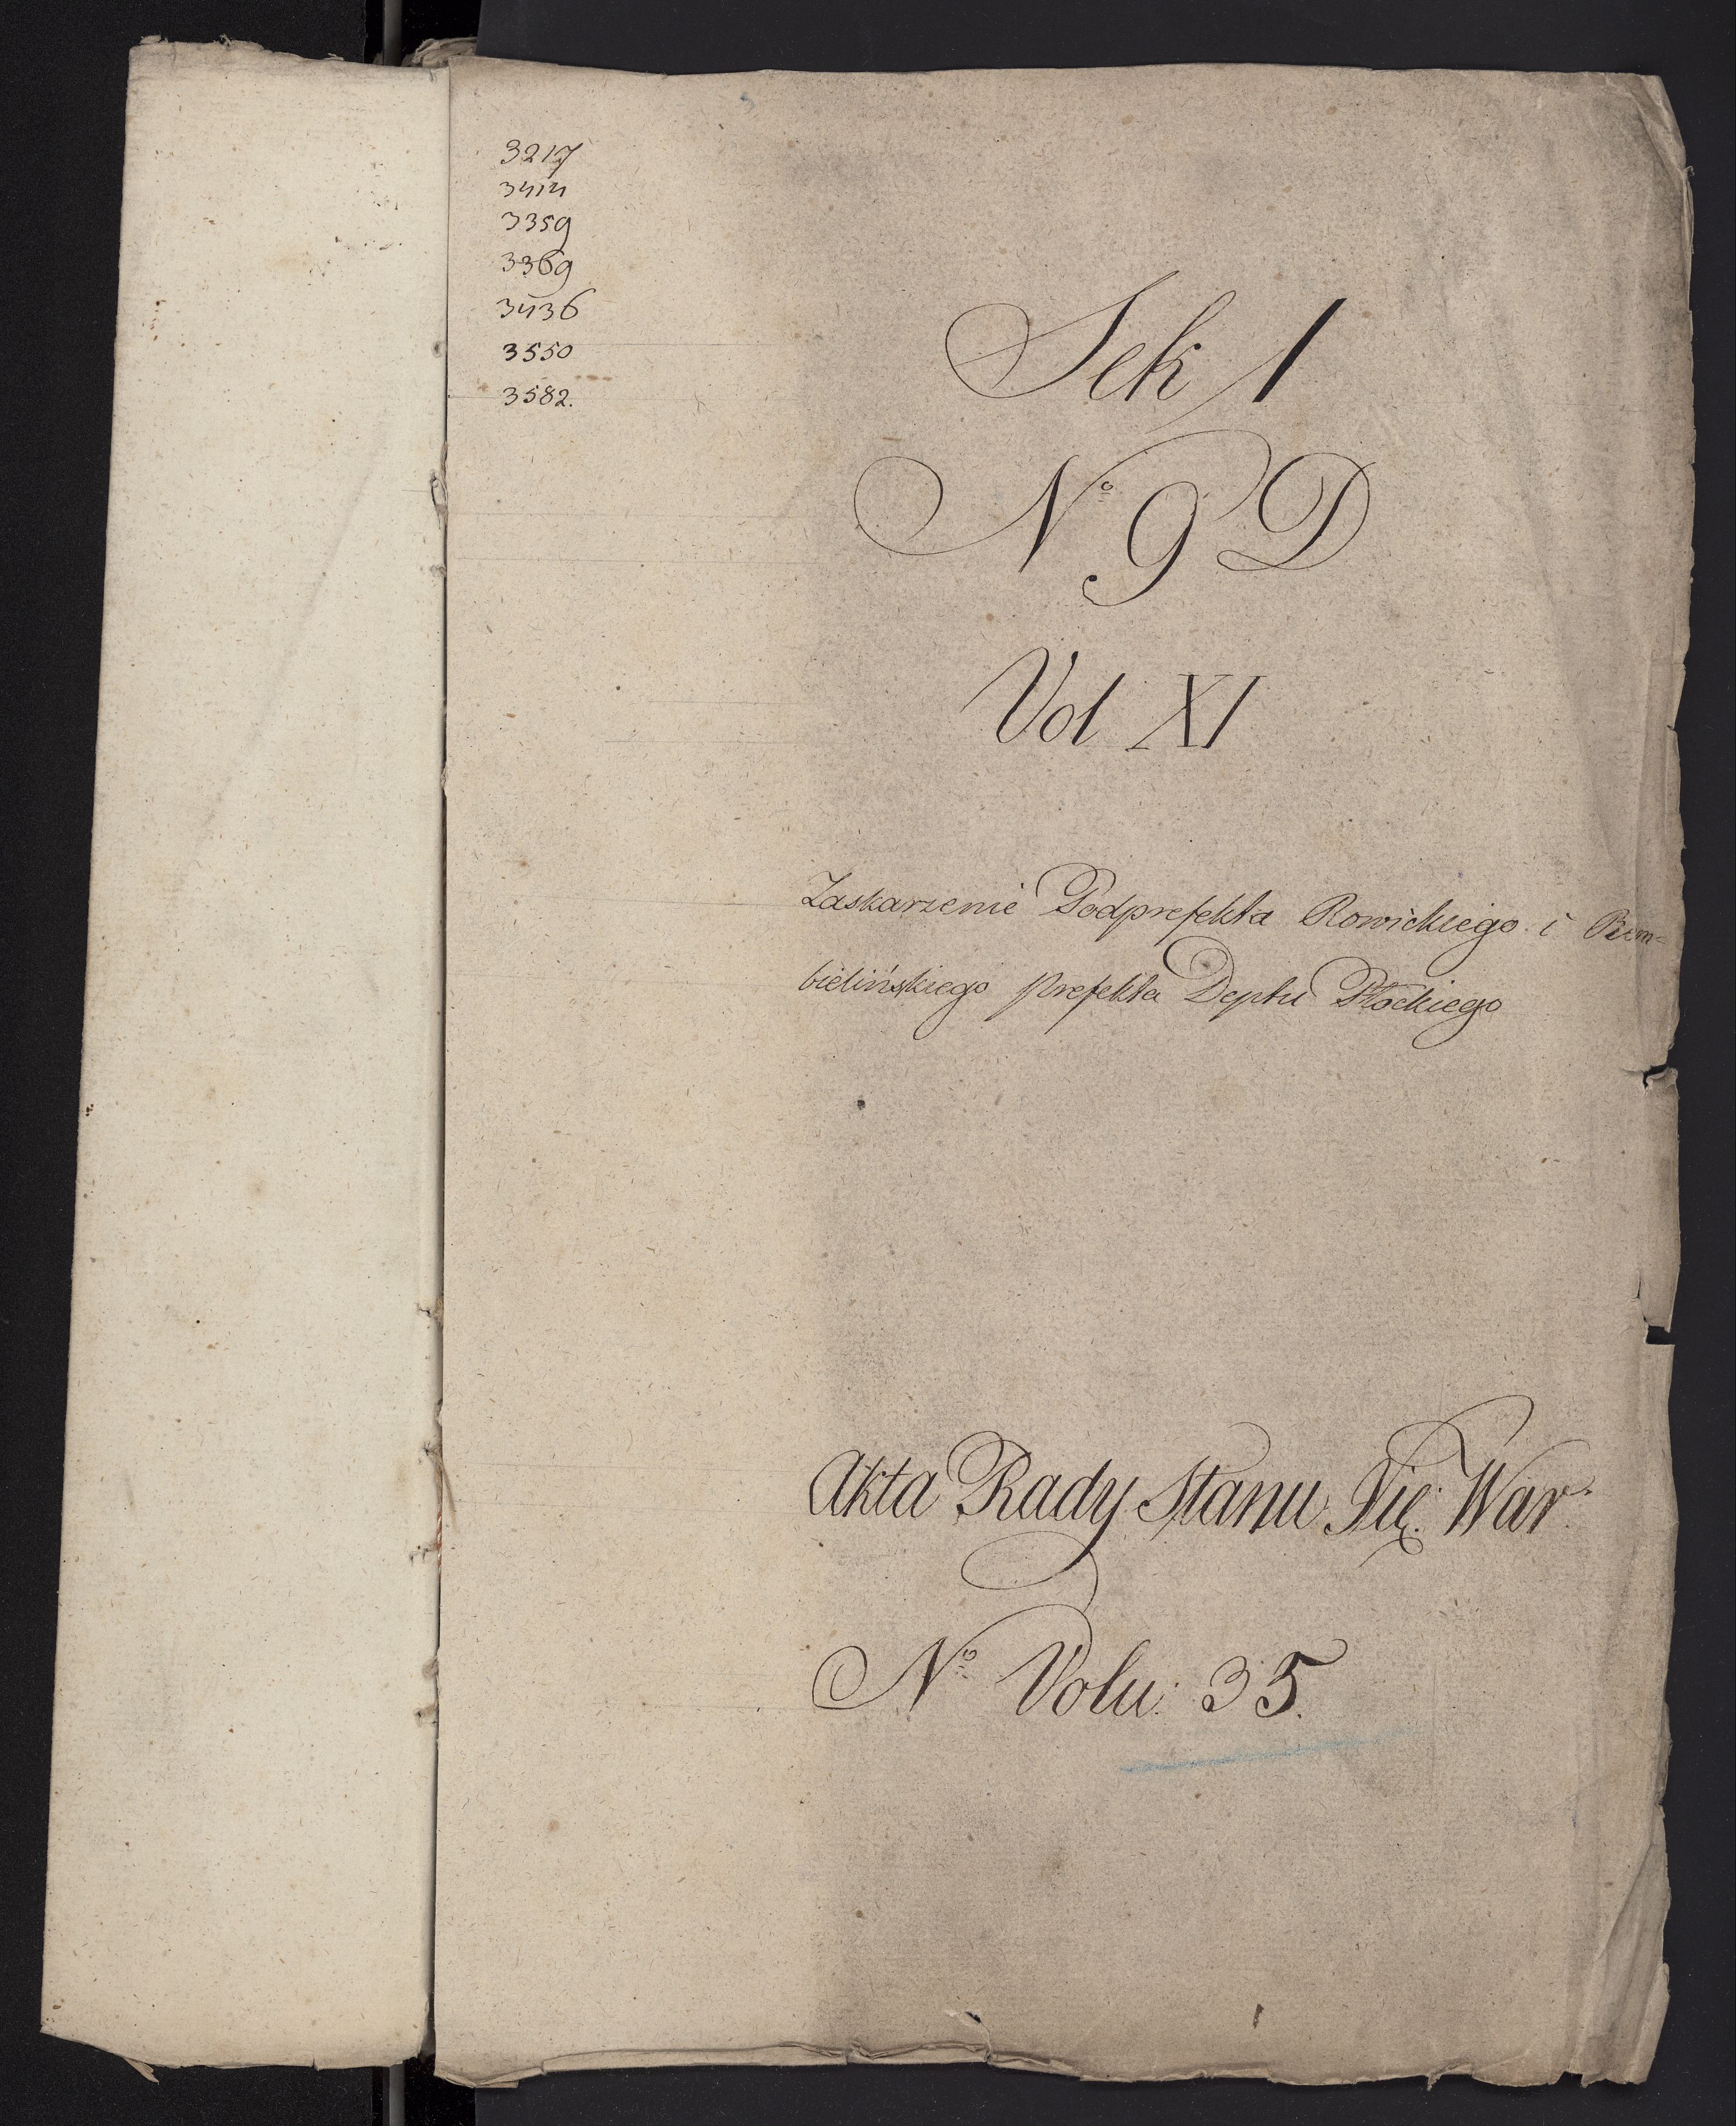 3217
3414
3359
3369
3436
3550
3582.
Sek 1
No 9 D
Vol XI
Zaskarzenie Podprefekta Rowickiego i Rem=
bielińskiego prefekta Deptu Płockiego
Akta Rady Stanu Xię: War:
No Volu: 35.
1